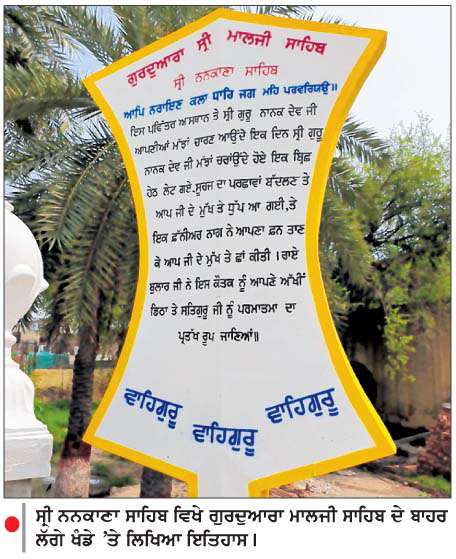 ਗੁਰਦੁਆਰਾ ਸ੍ਰੀ ਮਾਲਜੀ ਸਾਹਿਬ
ਸ੍ਰੀ ਨਨਕਾਣਾ ਸਾਹਿਬ
ਆਪਿ ਨਰਾਇਣ ਕਲਾ ਧਾਰਿ ਜਗ ਮਹਿ ਪਰਵਰਿਯਉ॥
ਇਸ ਪਵਿੱਤਰ ਅਸਥਾਨ ਤੇ ਸ੍ਰੀ ਗੁਰੂ ਨਾਨਕ ਦੇਵ ਜੀ
ਆਪਣੀਆਂ ਮੱਝਾਂ ਚਾਰਣ ਆਉਂਦੇ ਇਕ ਦਿਨ ਸ੍ਰੀ ਗੁਰੂ
ਨਾਨਕ ਦੇਵ ਜੀ ਮੱਝਾਂ ਚਰਾਉਂਦੇ ਹੋਏ ਇਕ ਬ੍ਰਿਛ
ਹੇਠ ਲੇਟ ਗਏ,ਸੂਰਜ ਦਾ ਪਰਛਾਵਾਂ ਬੱਦਲਣ ਤੇ
ਆਪ ਜੀ ਦੇ ਮੁੱਖ ਤੇ ਧੁੱਪ ਆ ਗਈ,ਤੇ
ਇਕ ਛੱਨੀਅਰ ਨਾਗ ਨੇ ਆਪਣਾ ਛਨ ਤਾਣ
ਕੇ ਆਪ ਜੀ ਦੇ ਮੁੱਖ ਤੇ ਛਾਂ ਕੀਤੀ।ਰਾਏ
ਬੁਲਾਰ ਜੀ ਨੇ ਇਸ ਕੌਤਕ ਨੂੰ ਆਪਣੇ ਅੱਖੀਂ
ਡਿਠਾ ਤੇ ਸਤਿਗੁਰੂ ਜੀ ਨੂੰ ਪਰਮਾਤਮਾ ਦਾ
ਪ੍ਰਤੱਖ ਰੂਪ ਜਾਣਿਆਂ॥
ਵਾਹਿਗੁਰੂ ਵਾਹਿਗੁਰੂ ਵਾਹਿਗੁਰੂ
ਸ੍ਰੀ ਨਨਕਾਣਾ ਸਾਹਿਬ ਵਿਖੇ ਗੁਰਦੁਆਰਾ ਮਾਲਜੀ ਸਾਹਿਬ ਦੇ ਬਾਹਰ
ਲੱਗੇ ਖੰਡੇ ’ਤੇ ਲਿਖਿਆ ਇਤਿਹਾਸ।